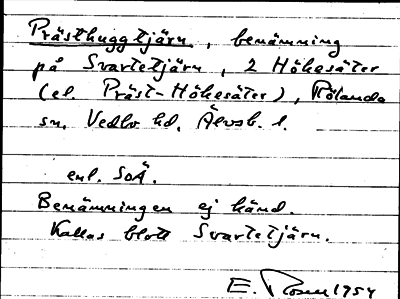 Prästhuggtjärn, benämning
på Svartetjärn, 2 Hökesäter
(el. Präst-Hökesäter), Rölanda
sn. Vedbo hd, Älvsb. l.
enl. SOÄ.
Benämningen ej känd.
Kallas blott Svartetjärn.
E. Rosen 1954